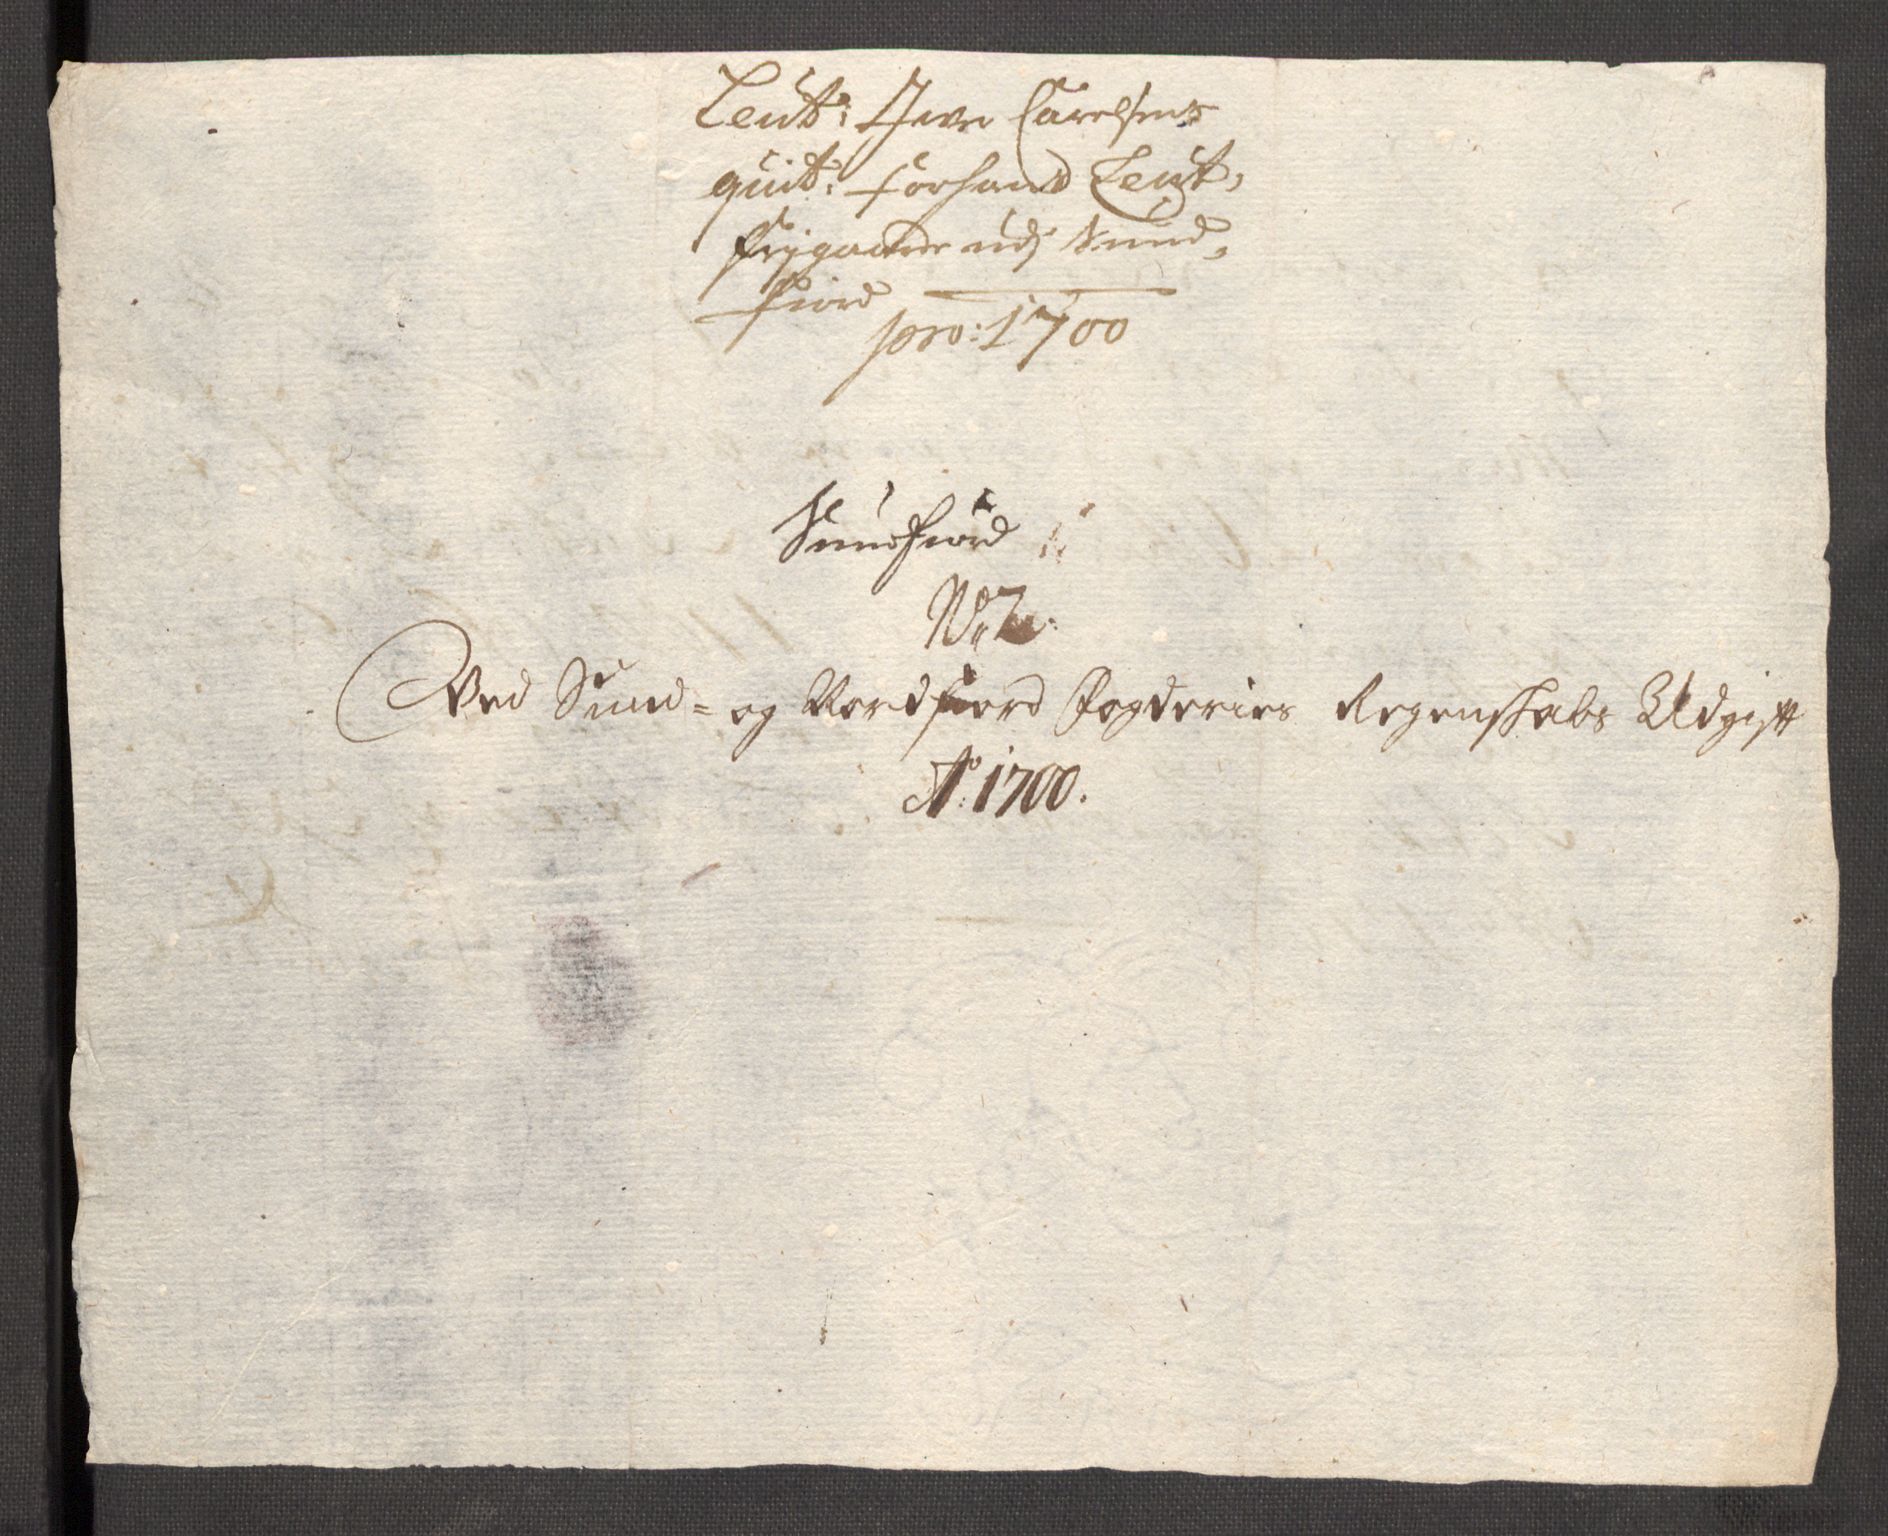 Leut: Iver Carelsens
quit: for hans Leut,
frijgaarde udj Sund-
fiord
pro: 1700
Sundfiord
No 2.
Ved Sund= og Nordfiord Fogderies Regenskabs Udgift
Ao: 1700.